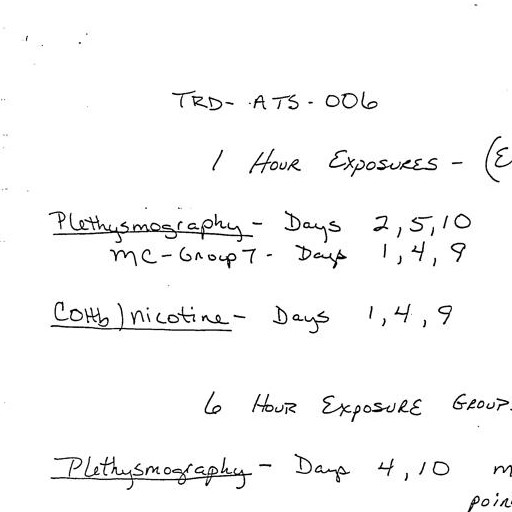 TRD-ATS-006
1 HOUR EXPOSURES - (E
Plethysmography - Days 2, 5, 10
MC-Group 7 - Days 1, 4, 9
COHb/nicotine - Days 1, 4, 9
6 HOUR EXPOSURE GROUP
Plethysmography - Days 4, 10 m
poin